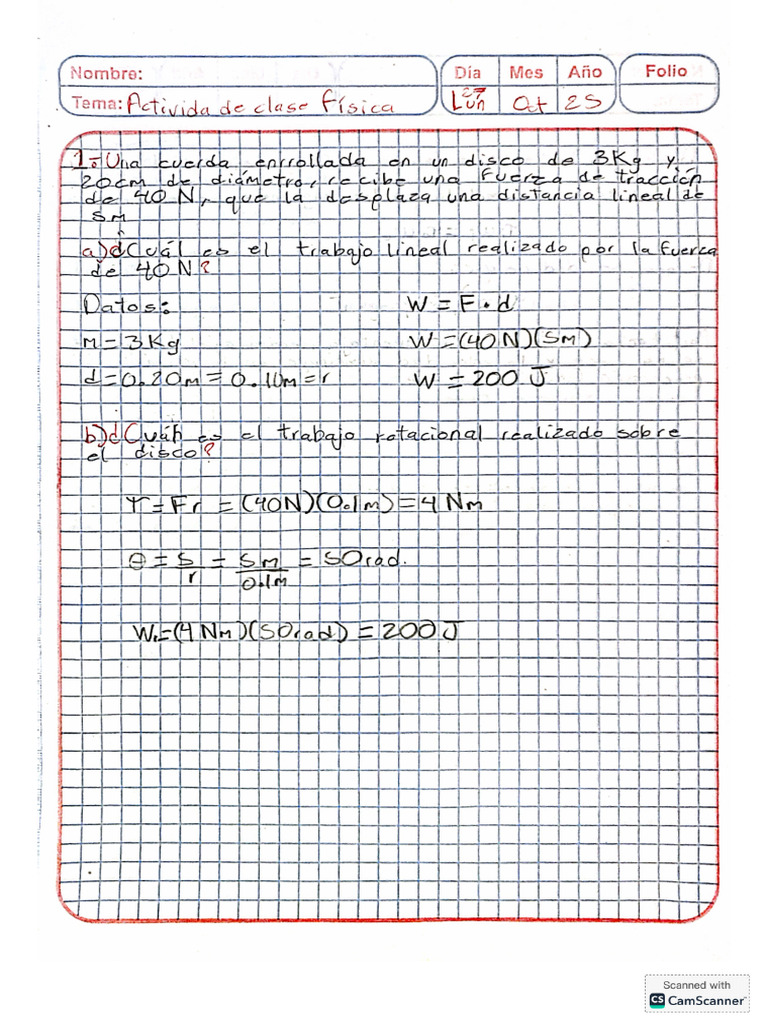 Nombre:
Día Mes Año Folio
Tema: Activida de clase Física
27 Lun Oct 25
1.- Una cuerda enrrollada en un disco de 3Kg y
20cm de diámetro, recibe una fuerza de tracción
de 40 N, que la desplaza una distancia lineal de
5m
a) ¿Cuál es el trabajo lineal realizado por la fuerza
de 40N?
Datos: W = F・d
m = 3Kg W = (40N)(5m)
d = 0.20m = 0.10m = r W = 200 J
b) ¿Cuál es el trabajo rotacional realizado sobre
el disco?
τ = Fr = (40N)(0.1m) = 4 Nm
θ = s/r = 5m/0.1m = 50rad.
W = (4 Nm)(50rad) = 200J
Scanned with
CS CamScanner